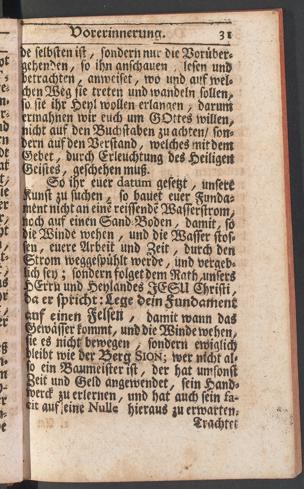 Vorerinnerung. 31
de selbsten ist, sondern nur die Vorüber-
gehenden, so ihn anschauen, lesen und
betrachten, anweiset, wo und auf wel-
chen Weg sie treten und wandeln sollen,
so sie ihr Heyl wollen erlangen, darum
ermahnen wir euch um GOttes willen,
nicht auf den Buchstaben zu achten/ son-
dern auf den Verstand, welches mit dem
Gebet, durch Erleuchtung des Heiligen
Geistes, geschehen muß.
So ihr euer datum gesetzt, unsere
Kunst zu suchen, so bauet euer Funda-
ment nicht an eine reissende Wasserstrom,
noch auf einen Sand-Boden, damit, so
die Winde wehen, und die Wasser stos-
sen, euere Arbeit und Zeit, durch den
Strom weggespühlt werde, und vergeb-
lich sey; sondern folget dem Rath unsers
HErrn und Heylandes JESU Christi,
da er spricht: Lege dein Fundament
auf einen Felsen, damit wann das
Gewässer kommt, und die Winde wehen,
sie es nicht bewegen, sondern ewiglich
bleibt wie der Berg SION; wer nicht al-
so ein Baumeister ist, der hat umsonst
Zeit und Geld angewendet, sein Hand-
werck zu erlernen, und hat auch sein
auf eine Nulle hieraus zu erwarten.
Trachtet